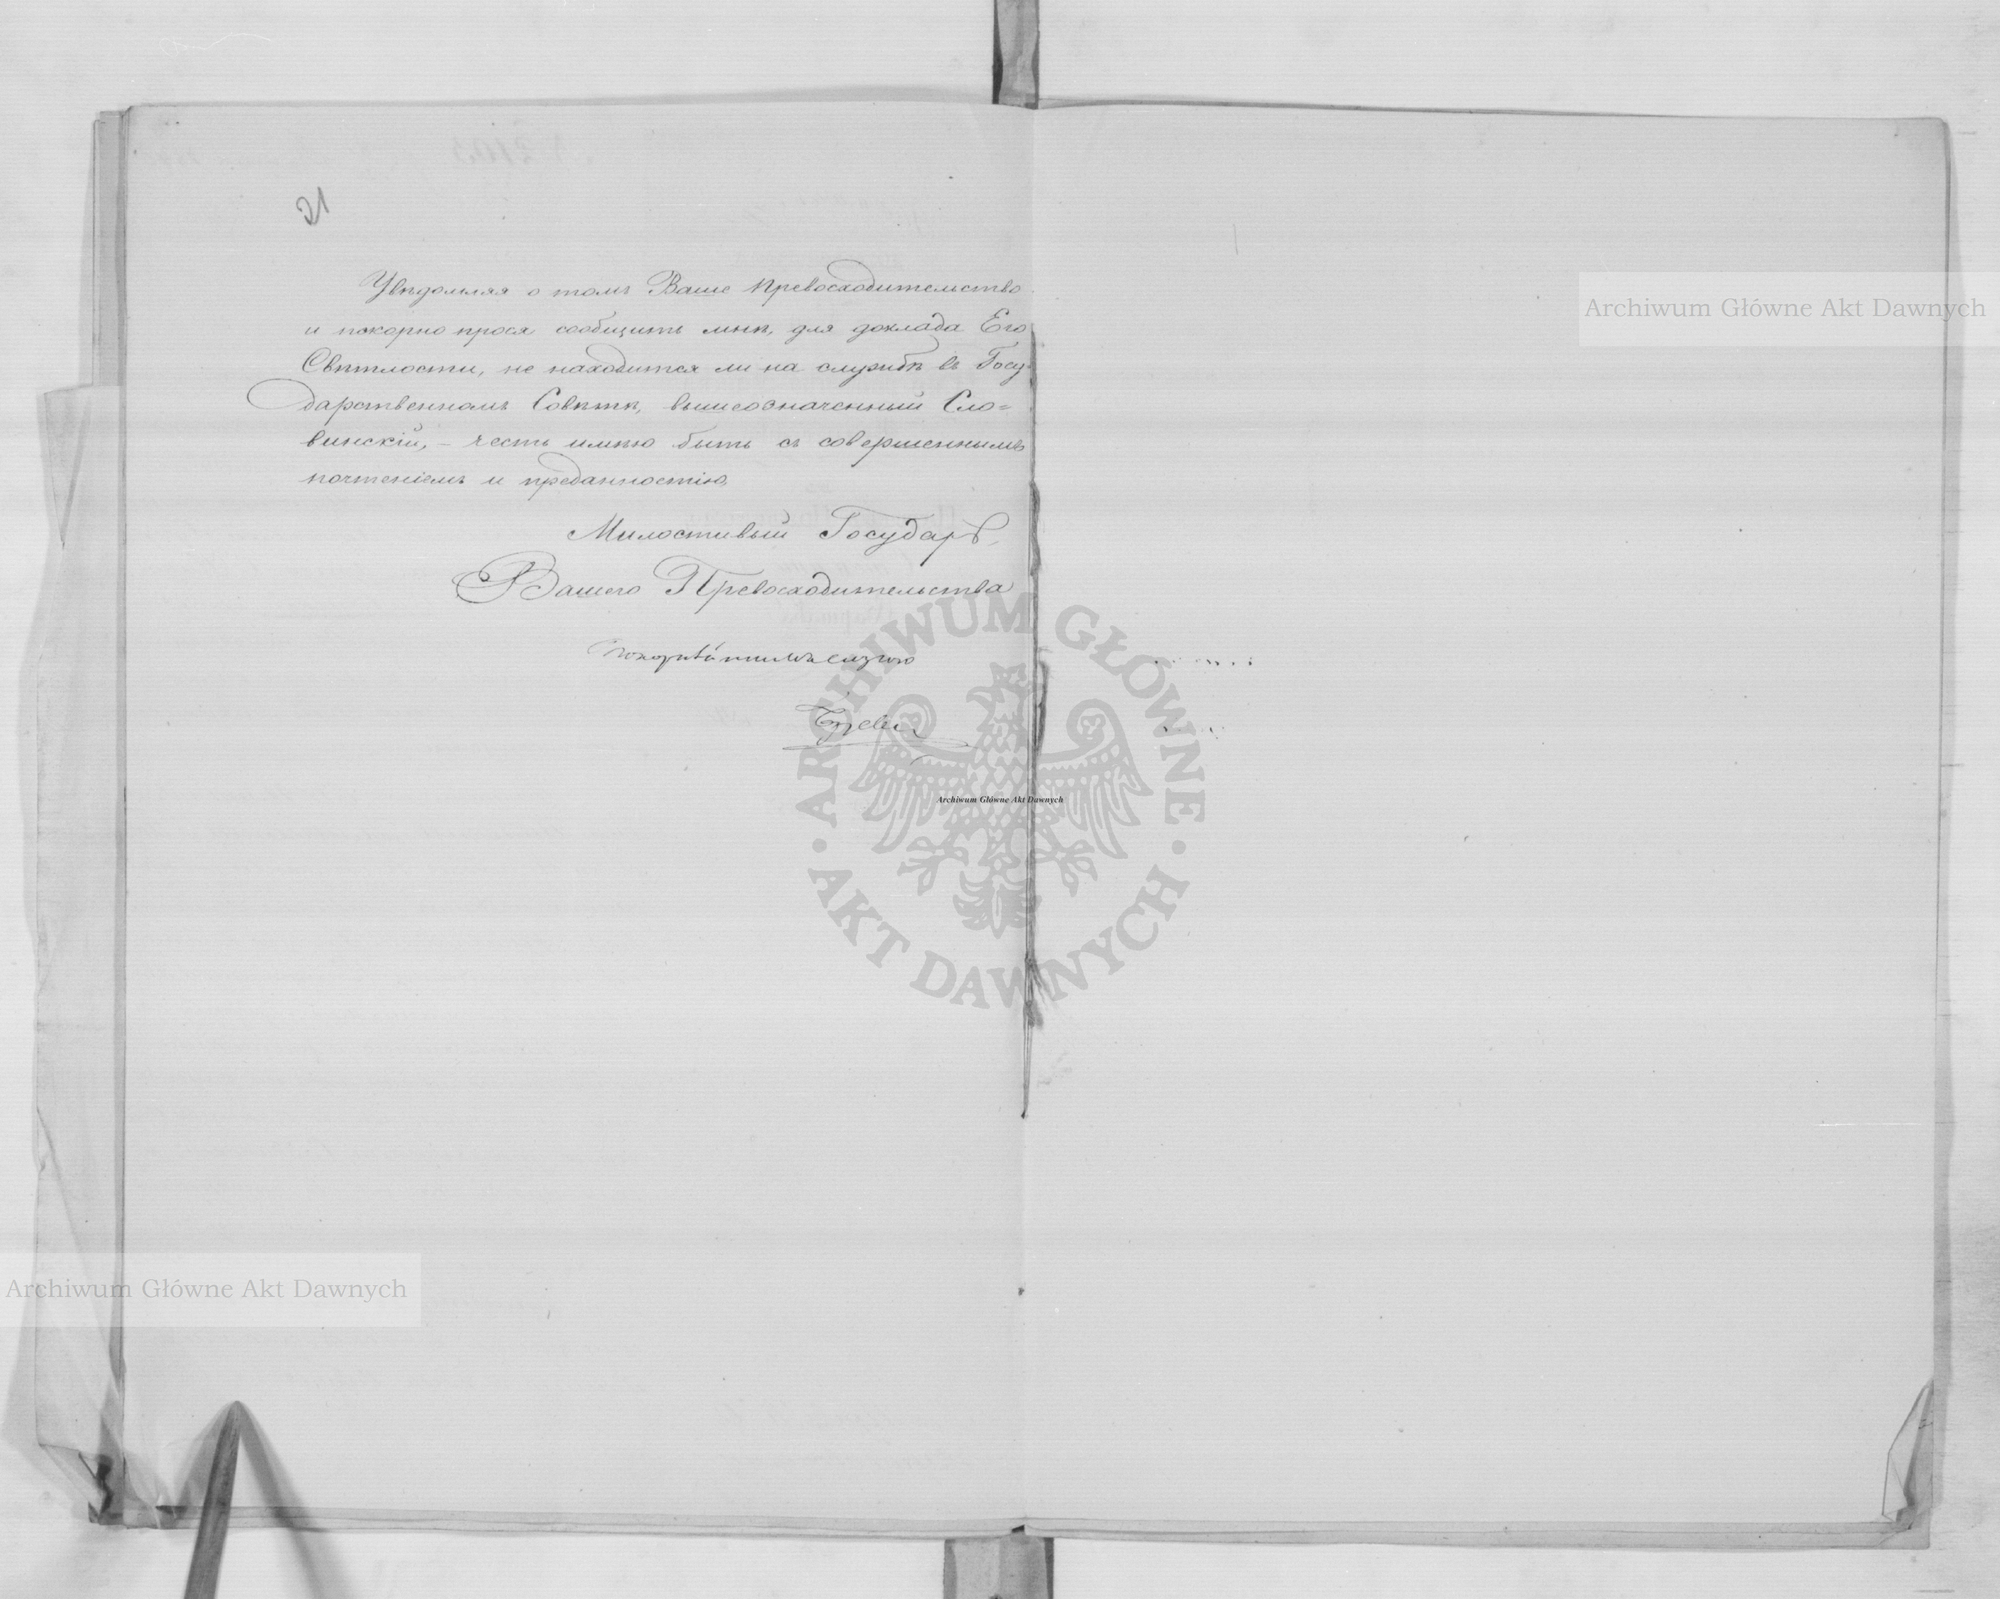 21
Увѣдомляя о томъ Ваше Превосходительство
и покорно прося сообщить мнѣ, для доклада Его
Свѣтлости, не находится ли на службѣ въ Госу-
дарственномъ Совѣтѣ, вышеозначенный Сло=
винскій, – честь имѣю быть съ совершеннымъ
почтеніемъ и преданностію,
Милостивый Государь,
Вашего Превосходительства
Archiwum Główne Akt Dawnych
ARCHIWUM GŁÓWNE
AKT DAWNYCH
Archiwum Główne Akt Dawnych
Archiwum Główne Akt Dawnych